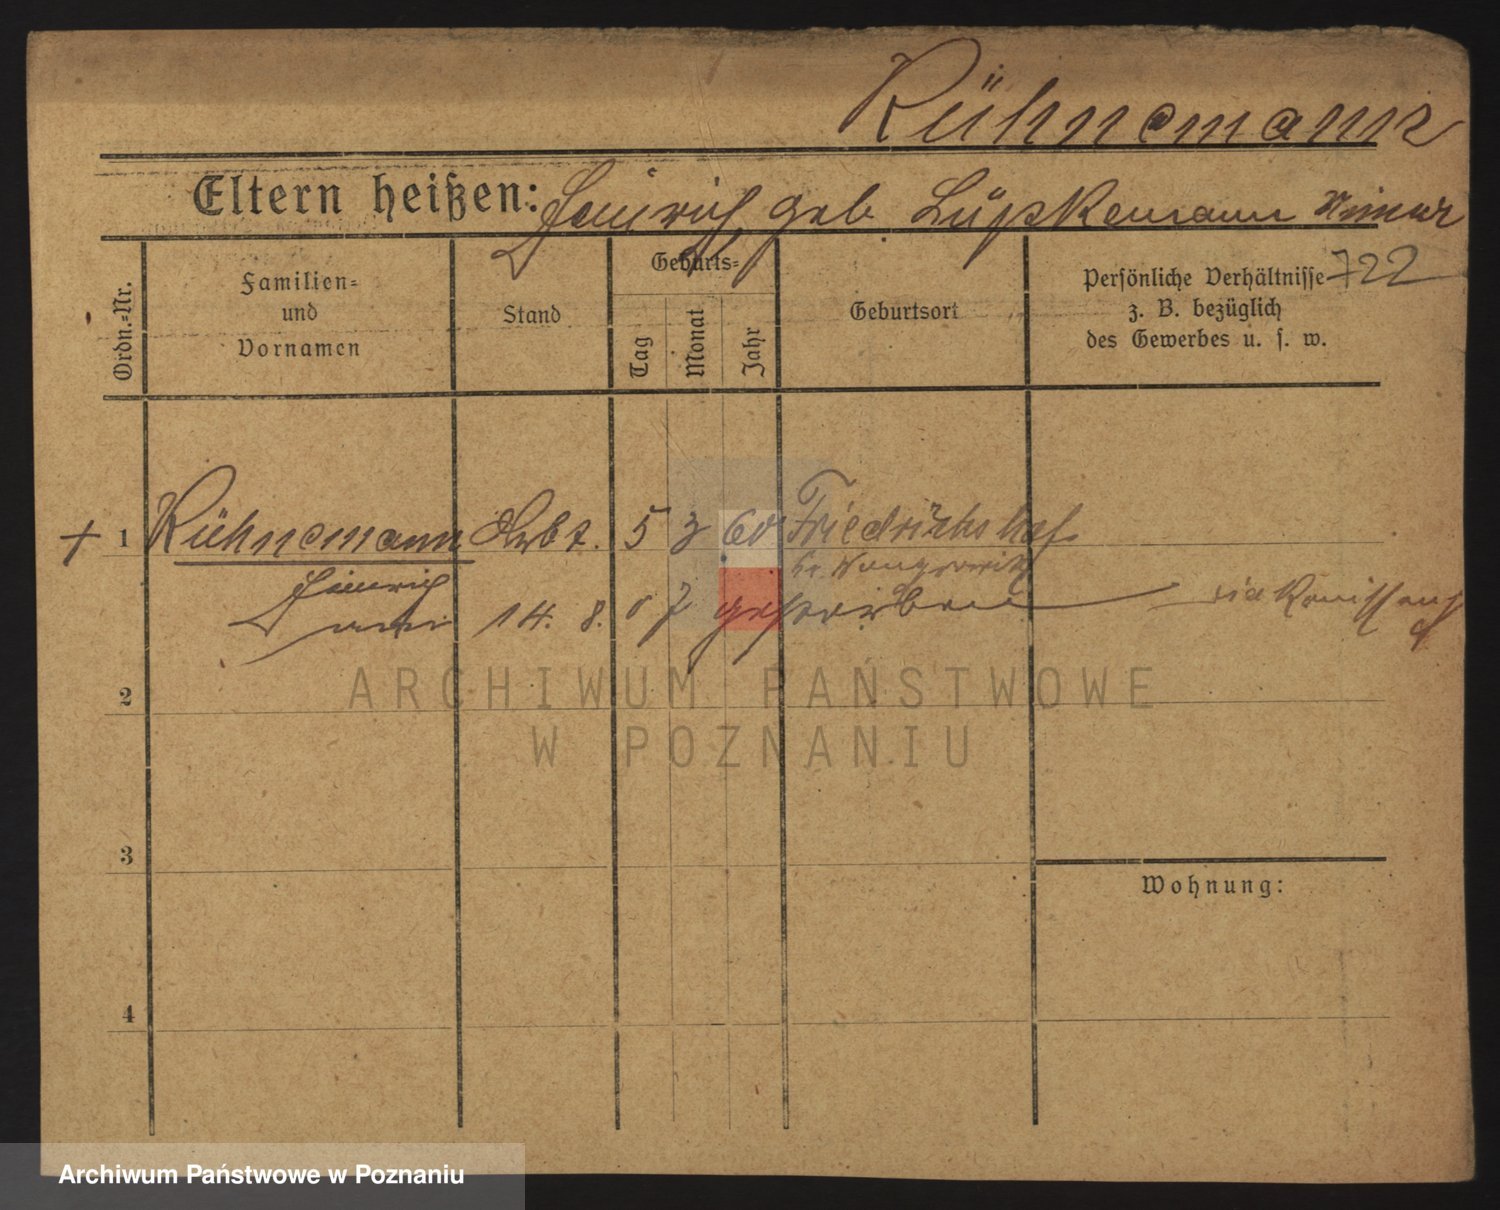 Kühnemann
Eltern heißen: Heinrich, geb. Lüpkemann
722
Ordn.-Nr.
Familien-
und
Vornamen
Stand
Geburts-
Tag
Monat
Jahr
Geburtsort
Persönliche Verhältnisse
z. B. bezüglich
des Gewerbes u. s. w.
+ 1 Kühnemann Arbt. 5 3 60 Friedrichshof
Heinrich Kr. Wongrowitz
14. 8. 07 gestorben
2
ARCHIWUM PAŃSTWOWE
W POZNANIU
3
Wohnung:
4
Archiwum Państwowe w Poznaniu